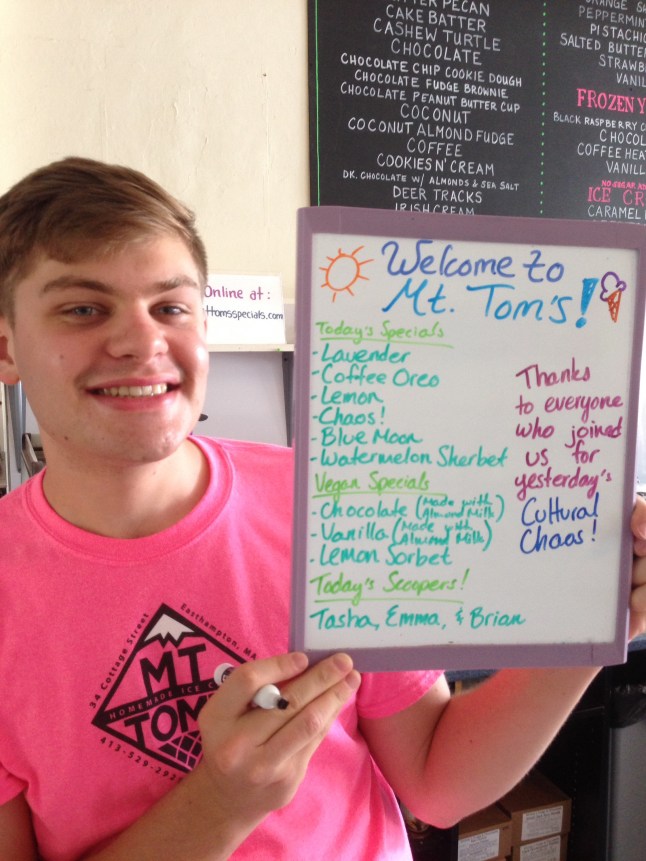 CAKE BATTER
CASHEW TURTLE
CHOCOLATE
CHOCOLATE CHIP COOKIE DOUGH
CHOCOLATE FUDGE BROWNIE
CHOCOLATE PEANUT BUTTER CUP
COCONUT
COCONUT ALMOND FUDGE
COFFEE
COOKIES N' CREAM
DK. CHOCOLATE W/ ALMONDS & SEA SALT
DEER TRACKS
IRISH CREAM
SALTED BUTTER
FROZEN Y
BLACK RASPBERRY C
CHOCOL
COFFEE HEA
VANILL
ICE CR
CARAMEL
Online at:
ttomsspecials.com
Welcome to
Mt. Tom's!
Today's Specials
- Lavender
- Coffee Oreo
- Lemon
- Chaos!
- Blue Moon
- Watermelon Sherbet
Vegan Specials
- Chocolate (Made with Almond Milk)
- Vanilla (Made with Almond Milk)
- Lemon Sorbet
Today's Scoopers!
Tasha, Emma, & Brian
Thanks
to everyone
who joined
us for
yesterday's
Cultural
Chaos!
34 Cottage Street
Easthampton, MA
MT
HOMEMADE ICE C
TOM
413-529-292